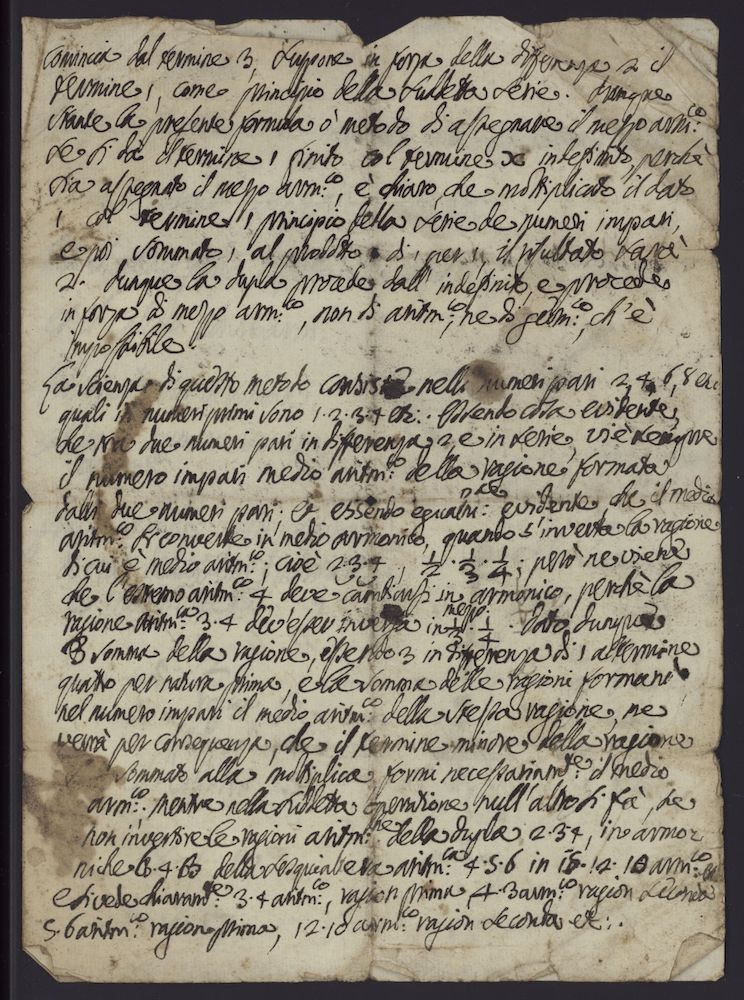 comincia dal termine 3, suppone in forza della differenza 2 il
termine 1, come principio della sudetta serie. Dunque
stante la presente formula o metodo di assegnare il mezzo arm:co
se si dà il termine 1 finito col termine x indefinito, perchè
sia assegnato il mezzo arm:co, è chiaro, che moltiplicato il dato
1 col termine 1 principio della serie de numeri impari,
e poi sommato 1 al prodotto di 1 per 1, il risultato sarà
2. Dunque la dupla procede dall'indefinito, e procede
in forza di mezzo arm:co, non di aritm:co, ne di geom:co, ch'è
impossibile.
La scienza di questo metodo consiste nelli numeri pari 2, 4, 6, 8 etc
quali in numeri primi sono 1. 2. 3. 4 etc:. Essendo cosa evidente,
che tra due numeri pari in differenza 2 e in serie, vi è sempre
il numero impari medio aritm:co della ragione formata
dalli due numeri pari; et essendo egualm:nte evidente, che il medio
aritm:co si converte in medio armonico, quando s'inverta la ragione
di cui è medio aritm:co; cioè 2. 3. 4, 1/2. 1/3. 1/4; però ne viene
che l'estremo aritm:co 4 deve cambiarsi in armonico, perchè la
ragione aritm:ca 3. 4 dev'esser inversa in mezzo 1/3. 1/4. Dato dunque
3 somma della ragione, essendo 3 in differenza di 1 al termine
quatro per natura prima, e la somma delle ragioni formanti
nel numero impari il medio aritm:co della stessa ragione, ne
verrà per conseguenza, che il termine minore della ragione
sommato alla moltiplica formi necessariam:te il medio
arm:co. mentre nella sudetta operatione null'altro si fà, se
non invertire le ragioni aritm:che della dupla 2. 3 4, in armo-
niche 3. 4. 6 della sesquialtera aritm:ca 4. 5. 6 in 15. 12. 10 arm:co
e si vede chiaram:te 3. 4 aritm:co, ragion prima, 4. 3 arm:co ragion seconda
5. 6 aritm:co ragion prima, 12. 10 arm:co ragion seconda etc:.